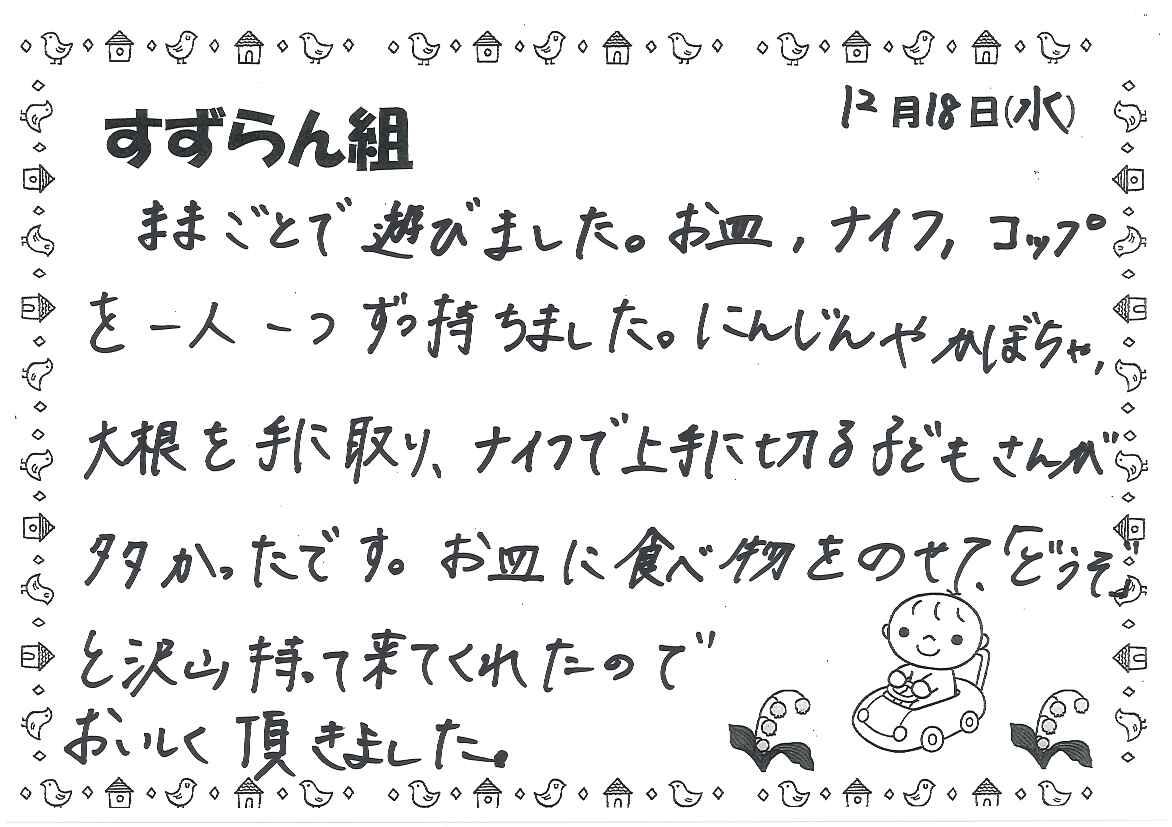 12月18日(水)
すずらん組
ままごとで遊びました。お皿,ナイフ,コップ
を一人一つずつ持ちました。にんじんやかぼちゃ,
大根を手に取り、ナイフで上手に切る子どもさんが
多かったです。お皿に食べ物をのせて、「どうぞ」
と沢山持って来てくれたので
おいしく頂きました。